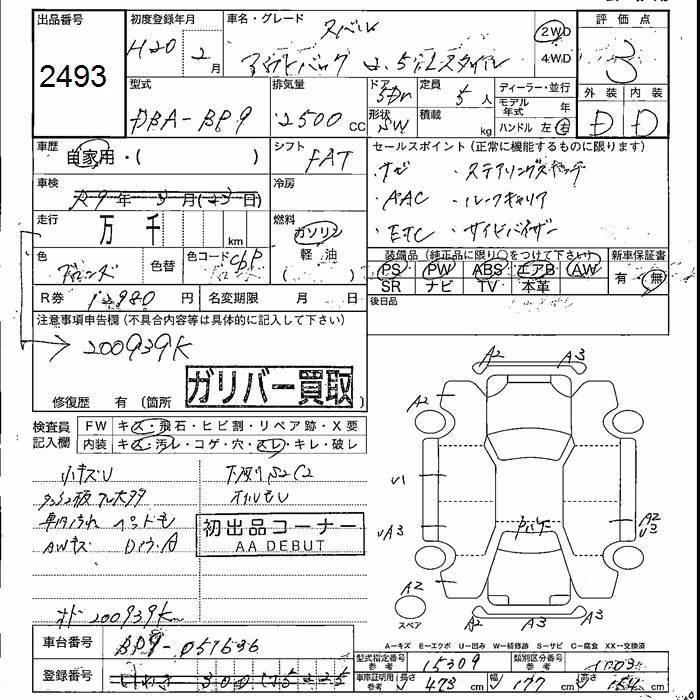 出品番号
2493
初度登録年月
H20 年 2月
車名・グレード
スバル
2WD
4WD
評価点
3
外装 内装
D D
型式
DBA-BP9
排気量
2500 cc
ドア
5Dr
形状
SW
定員
5人
積載
kg
ディーラー・並行
モデル年式 年
ハンドル 左 右
車歴
自家用・( )
シフト
FAT
セールスポイント(正常に機能するものに限ります)
・ナビ ・ステアリングスイッチ
・AAC ・ルーフキャリア
・ETC ・サイドバイザー
車検
冷房
走行
万 千 km
燃料
ガソリン
軽油
( )
色
色替
色コード
装備品(純正品に限り○をつけて下さい)
PS PW ABS エアB AW
SR ナビ TV 本革
新車保証書
有・無
後日品
R券 12980 円
名変期限 月 日
注意事項申告欄(不具合内容等は具体的に記入して下さい)
→ 200939K
ガリバー買取
修復歴 有(箇所 )
検査員記入欄
FW キズ・飛石・ヒビ割・リペア跡・X要
内装 キズ・汚レ・コゲ・穴・スレ・キレ・破レ
小キズU
AWキズ
初出品コーナー
AA DEBUT
200939Km
A2 A3
A2
U1
UA3
A2
U3
A2
スペア
A2 A3
A3
A-キズ E-エクボ U-凹み W-補修跡 S-サビ C-腐食 XX-交換済
車台番号
BP9-051636
登録番号
型式指定番号 参考
15309
類別区分番号 参考
車庫証明用 参考
長さ 473 cm
幅 177 cm
高さ cm